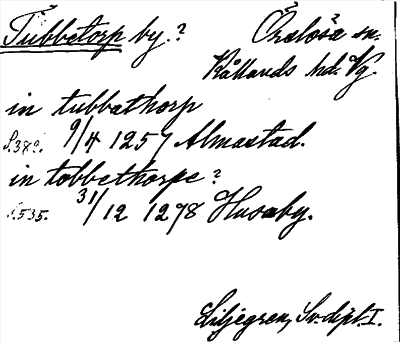 Tubbetorp by.? Örslösa sn.
Kållands hd. Vg.
in tubbathorp
S.380. 9/4 1257 Almastad.
in tobbethorpe?
S.535. 31/12 1278 Husaby.
Liljegren, Sv. dipl. I.